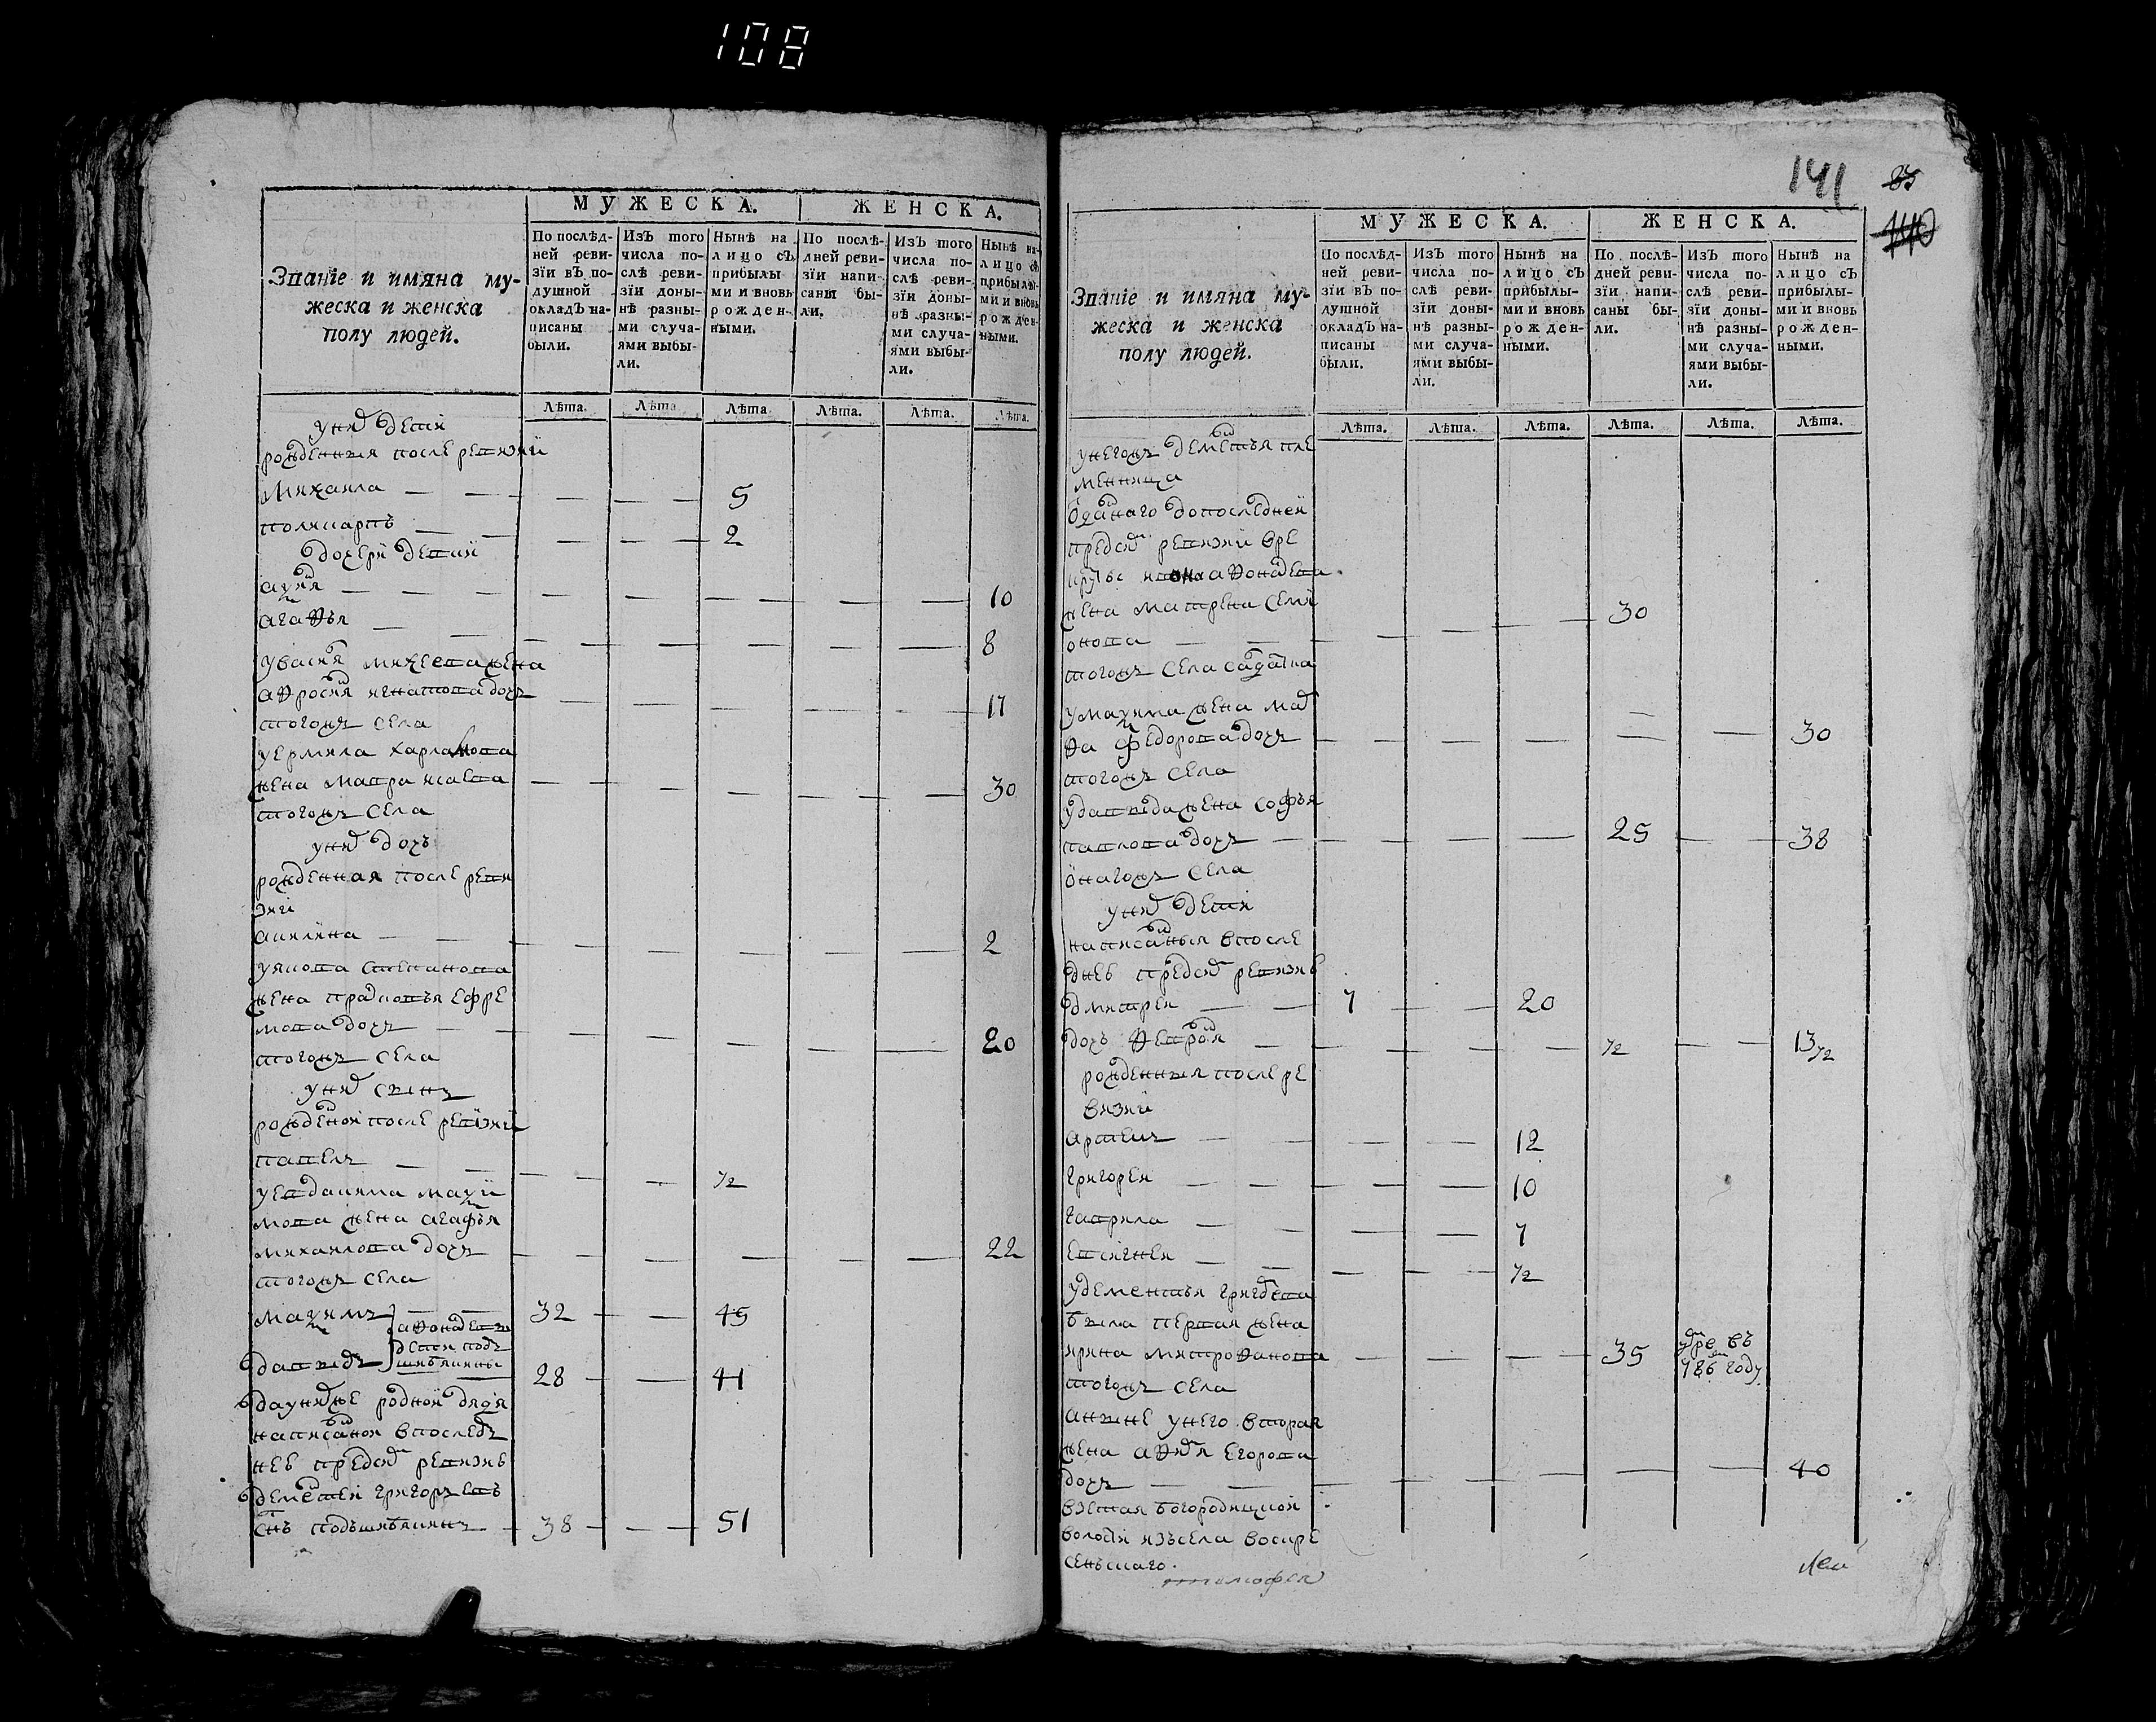 108
МУЖЕСКА. ЖЕНСКА.
Званїе и имяна му-
жеска и женска
полу людей.
По послѣд-
ней реви-
зїи въ по-
душной
окладъ на-
писаны
были.
Изъ того
числа по-
слѣ реви-
зїи доны-
нѣ разны-
ми случа-
ями выбы-
ли.
Нынѣ на
лицо съ
прибылы-
ми и вновь
рожден-
ными.
По послѣ-
дней реви-
зїи напи-
саны бы-
ли.
Изъ того
числа по-
слѣ реви-
зїи доны-
нѣ разны-
ми случа-
ями выбы-
ли.
Нынѣ на-
лицо съ
прибылы-
ми и вновь
рожден-
ными.
Лѣта. Лѣта Лѣта. Лѣта. Лѣта. Лѣта.
у них дети
рожденныя после ревизии
Михаила 5
поликарпъ 2
дочери дети
10
агафья 8
жена
афросиня игнатова дочь 17
тогожъ села
у ермила харламова
жена мавра 30
тогожъ села
у них дочь
рожденная после реви
зиi
акилина 2
у якова степанова
жена прасковья ефре
мова дочь 20
тогожъ села
у них сынъ
рожденой после ревизии
павелъ 1/2
у евдакима макси
мова жена агафья
михаилова дочь 22
тогожъ села
максимъ 32 45
давыдъ 28 41
да у них же родной дядя
написаной в послед
нев пред сим ревизиѣ
дементей григорьевъ
снъ 38 51
141 83
140
МУЖЕСКА. ЖЕНСКА.
Званїе и имяна му-
жеска и женска
полу людей.
По послѣд-
ней реви-
зїи въ по-
душной
окладъ на-
писаны
были.
Изъ того
числа по-
слѣ реви-
зїи доны-
нѣ разны-
ми случа-
ями выбы-
ли.
Нынѣ на
лицо съ
прибылы-
ми и вновь
рожден-
ными.
По послѣ-
дней реви-
зїи напи-
саны бы-
ли.
Изъ того
числа по-
слѣ реви-
зїи доны-
нѣ разны-
ми случа-
ями выбы-
ли.
Нынѣ на
лицо съ
прибылы-
ми и вновь
рожден-
ными.
Лѣта. Лѣта. Лѣта. Лѣта. Лѣта. Лѣта.
у негожъ дементья пле
менница
отданаго до последней
пред сим ревизии в ре
круты
жена матрена семи 30
онова
тогожъ села
у максима жена мар
фа федорова дочь 30
тогожъ села
у давыда жена софья
павлова дочь 25 38
онагожъ села
у них дети
написаныя в после
днеѣ пред сим ревизиѣ
дмитреи 7 20
дочь 1/2 13 1/2
рожденныя после ре
визии
артемъ 12
григореи 10
гаврила 7
евсигнеи 1/2
у дементья григорьева
была первая жена
ирина митрофанова 35 умре въ
786м году
тогожъ села
а ныне у него вторая
жена егорова
дочь 40
взятая богородицкой
волости изъ села воскре
сеньскаго.